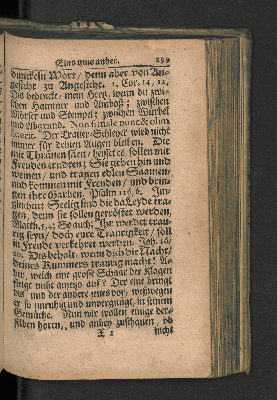 Eins ums ander. 299
dunckeln Wort / denn aber von An-
gesicht zu Angesicht. 1. Cor. 14, 12.
Dis bedencke / mein Hertz, wenn du zwi-
schen Hammer und Amboß; zwischen
Mörser und Stempel; zwischen Würbel
und Abgrund. Non si male nunc & olim
sic erit. Der Trauer-Schleyer wird nicht
immer für deinen Augen bleiben. Die
mit Thränen säen / heisset es, sollen mit
Freuden erndten; Sie gehen hin und
weinen / und tragen edlen Saamen /
und kommen mit Freuden / und brin-
gen ihre Garben. Psalm 126, 6. In-
gleichen: Seelig sind die da Leyde tra-
gen, denn sie sollen getröstet werden,
Matth. 5, 4; So auch: Ihr werdet trau-
rig seyn / doch eure Traurigkeit / soll
in Freude verkehret werden. Joh. 16,
20. Dis behalt, wenn dich die Nacht /
deines Kummers traurig macht! A-
ber, welch eine grosse Schaar der Klagen
steiget nicht annetzo auf? Der eine bringt
dis / und der andere jenes vor, weßwegen
er so unruhig und unvergnügt, in seinem
Gemüthe. Nun wir wollen einige der-
selben hören, und anbey zuschauen, ob
X 2 nicht